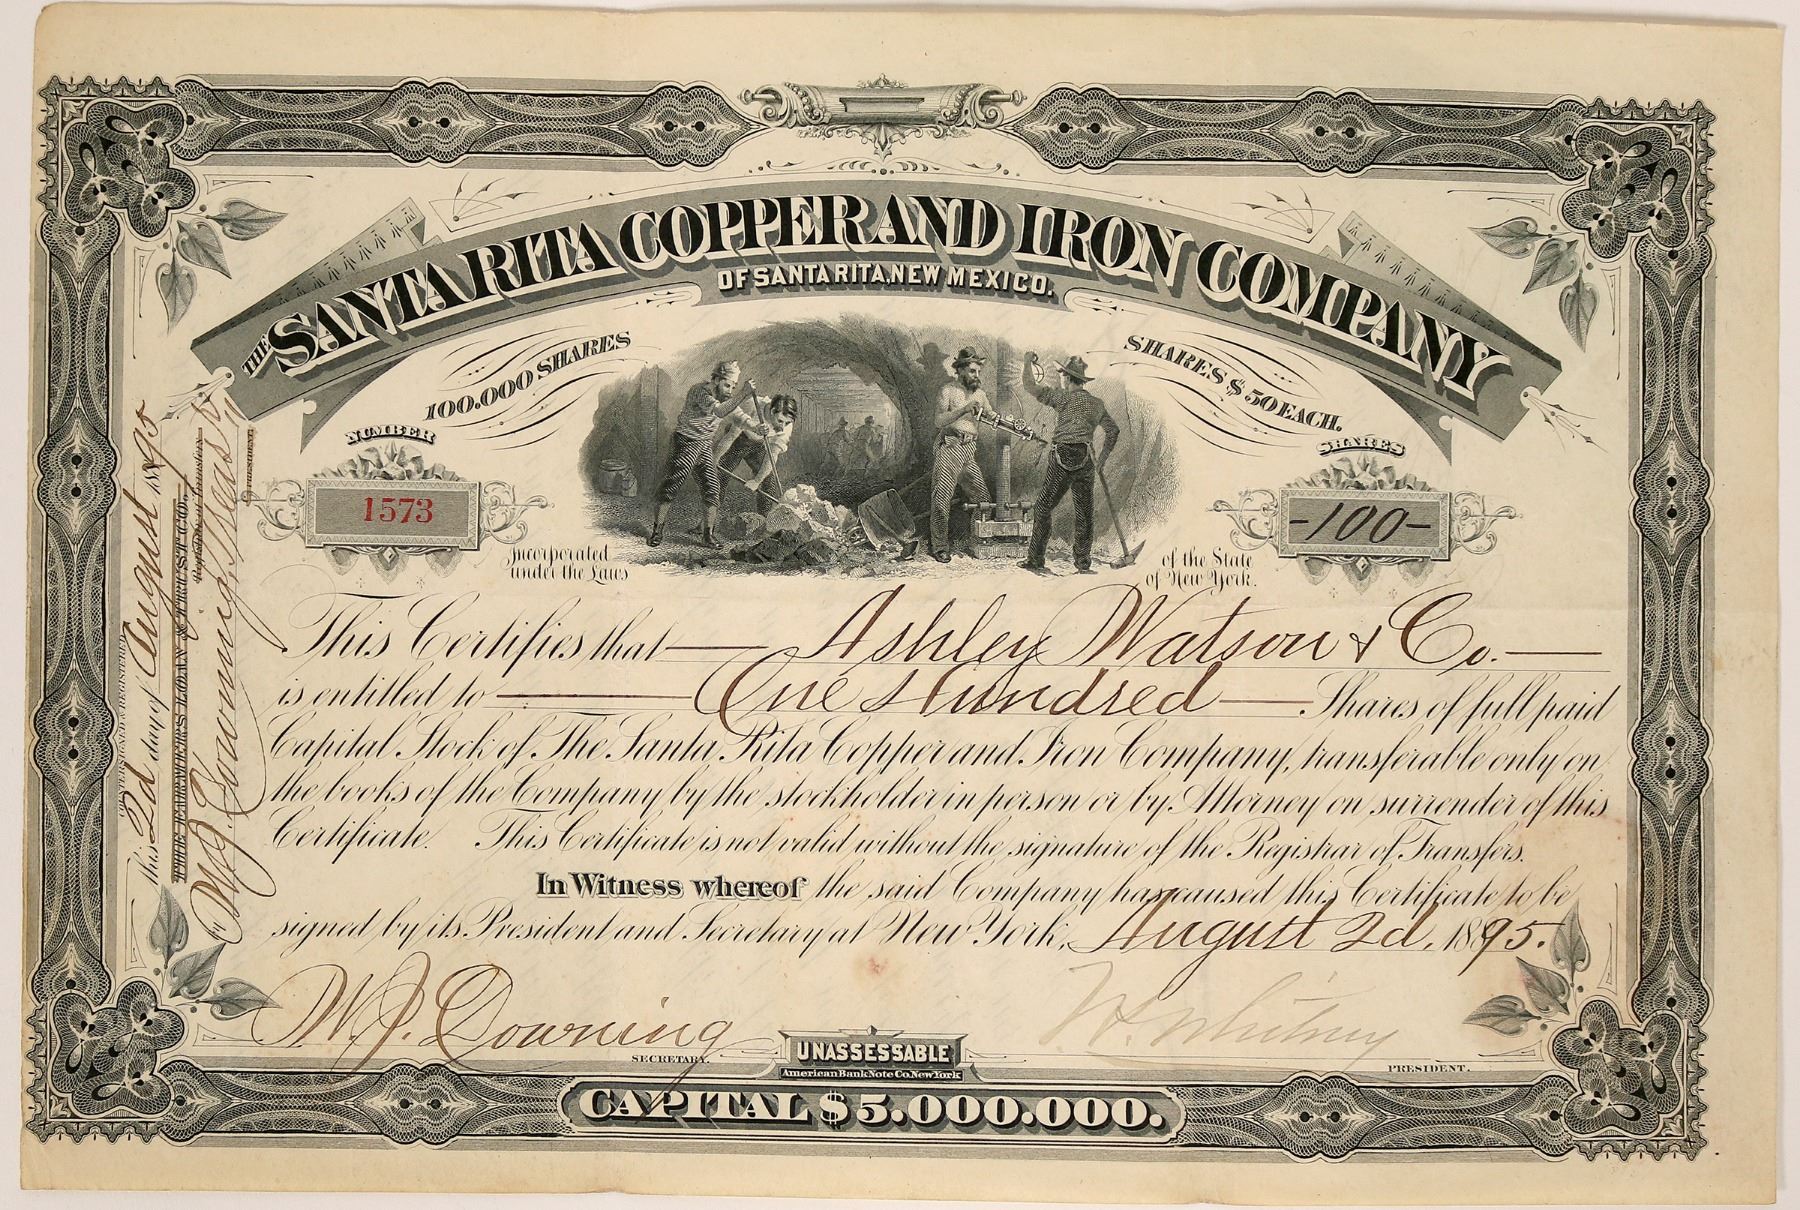 THE SANTA RITA COPPER AND IRON COMPANY
OF SANTA RITA, NEW MEXICO.
100.000 SHARES
SHARES $50 EACH.
NUMBER
1573
SHARES
-100-
Incorporated
under the Laws
of the State
of New York.
This Certifies that Ashley Watson & Co.
is entitled to One Hundred Shares of full paid
Capital Stock of The Santa Rita Copper and Iron Company, transferable only on
the books of the Company by the stockholder in person or by Attorney on surrender of this
Certificate. This Certificate is not valid without the signature of the Registrar of Transfers.
In Witness whereof the said Company has caused this Certificate to be
signed by its President and Secretary at New York, August 2d, 1895.
W. J. Downing
SECRETARY.
H. Whitney
PRESIDENT.
UNASSESSABLE
American Bank Note Co. New York
CAPITAL $5.000.000.
COUNTERSIGNED & REGISTERED
this 2d day of August 1895
THE FARMERS LOAN & TRUST CO.
Registrar of Transfers
W J Downing, Treas'r
PRESIDENT